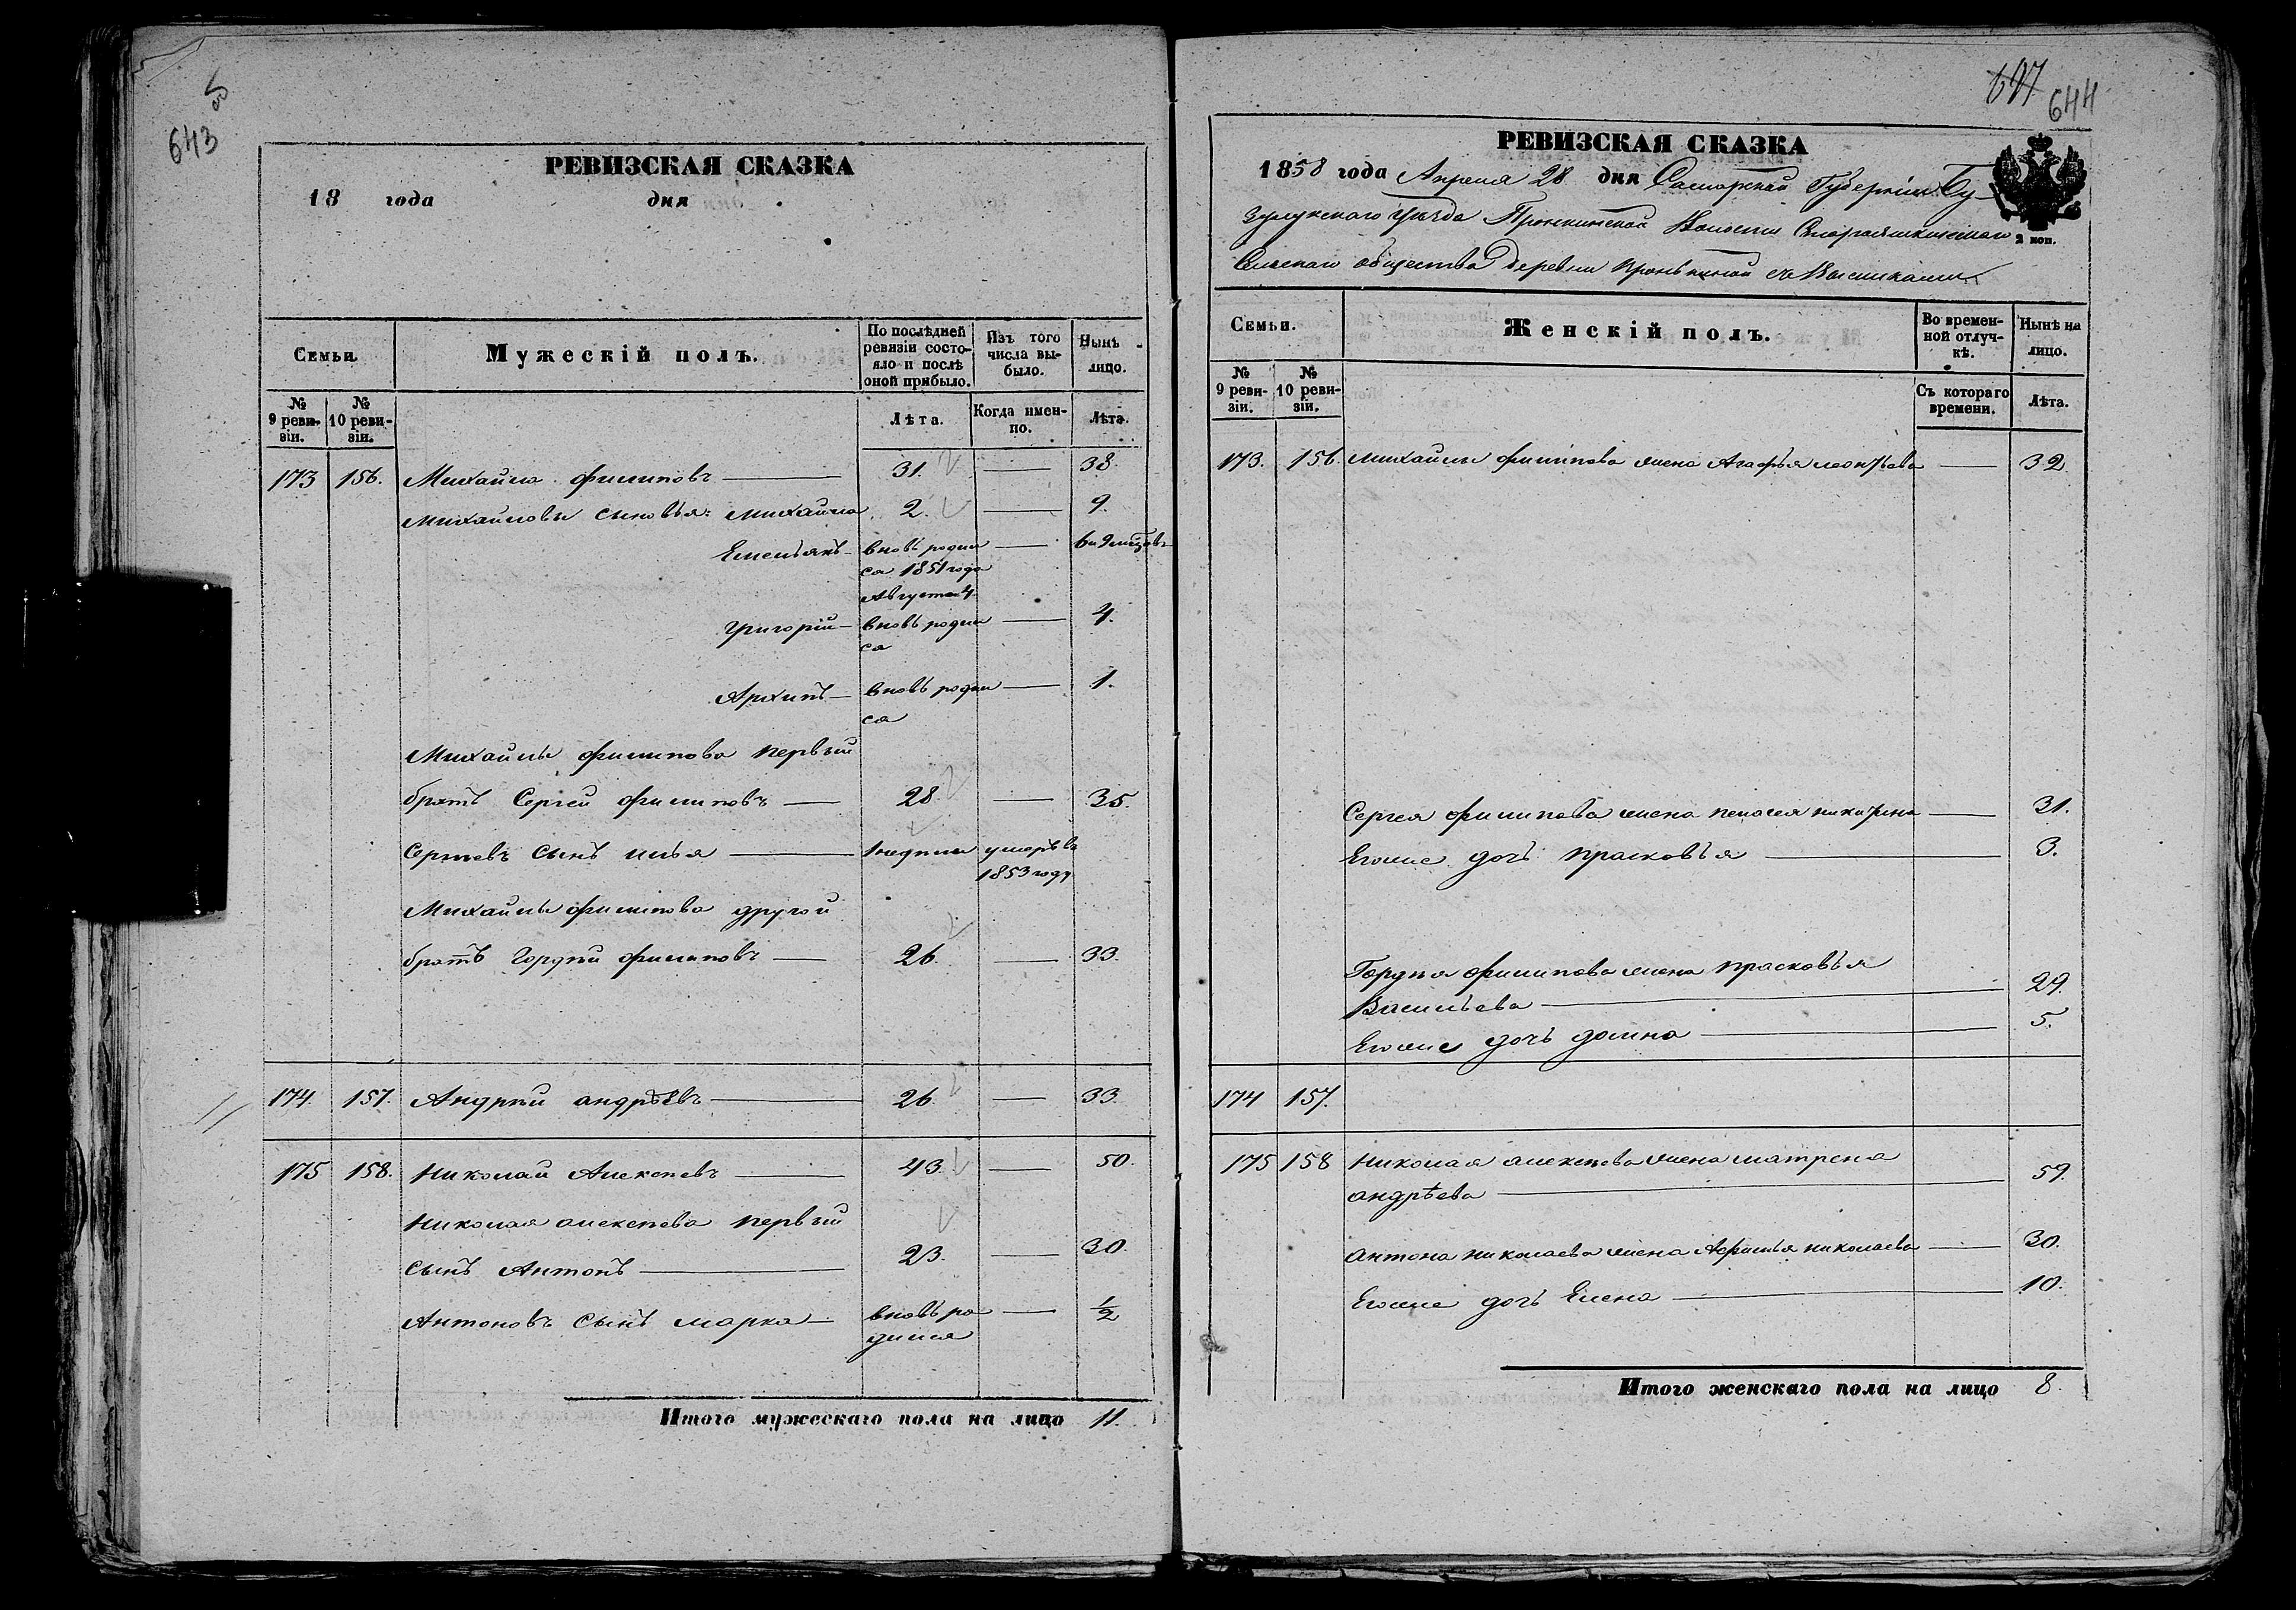 643
РЕВИЗСКАЯ СКАЗКА
18 года дня
Семьи.
Мужескій полъ.
По послѣдней ревизіи состояло и послѣ оной прибыло.
Изъ того числа выбыло.
Нынѣ лицо.
№ 9 ревизіи.
№ 10 ревизіи.
Лѣта.
Когда именно.
Лѣта.
173 156. Михайла Филиповъ 31. 38.
Михайловы сыновья: Михайла 2. 9.
Емельянъ вновь родил 6 и 9 мѣсяцовъ
ся 1851 года
Августа 4
Григорій вновь родил 4.
ся
Архипъ вновь родил 1.
ся
Михайлы Филипова первый
братъ Сергей Филиповъ 28. 35.
Сергѣевъ сынъ Илья 1 недѣли умеръ въ
1853 году
Михайлы Филипова другой
братъ Гордѣй Филиповъ 26. 33.
174. 157. Андрѣй Андрѣевъ 26. 33.
175 158. Николай Алексѣевъ 43. 50.
Николая Алексѣева первый
сынъ Антонъ 23. 30.
Антоновъ сынъ Марка вновь ро ½
дился
Итого мужескаго пола на лицо 11.
644
РЕВИЗСКАЯ СКАЗКА
1858 года Апреля 28 дня Самарской Губерніи Бу
зулукского Уѣзда Пронкинской Волости
Сельскаго общества деревни Пронькиной
2 коп.
Семьи.
Женскій полъ.
Во временной отлучкѣ.
Нынѣ на лицо.
№ 9 ревизіи.
№ 10 ревизіи.
Съ котораго времени.
Лѣта.
173. 156. Михайлы Филипова жена Агафья Леонтьева 32
Сергея Филипова жена Пелагея Никитина 31.
Егоже дочь Прасковья 3.
Гордѣя Филипова жена Прасковья
Васильева 29.
Егоже дочь Домна 5.
174 157.
175 158 Николая Алексѣева жена Матрена
Андрѣева 59.
Антона Николаева жена Афимья Николаева 30.
Егоже дочь Елена 10.
Итого женскаго пола на лицо 8.